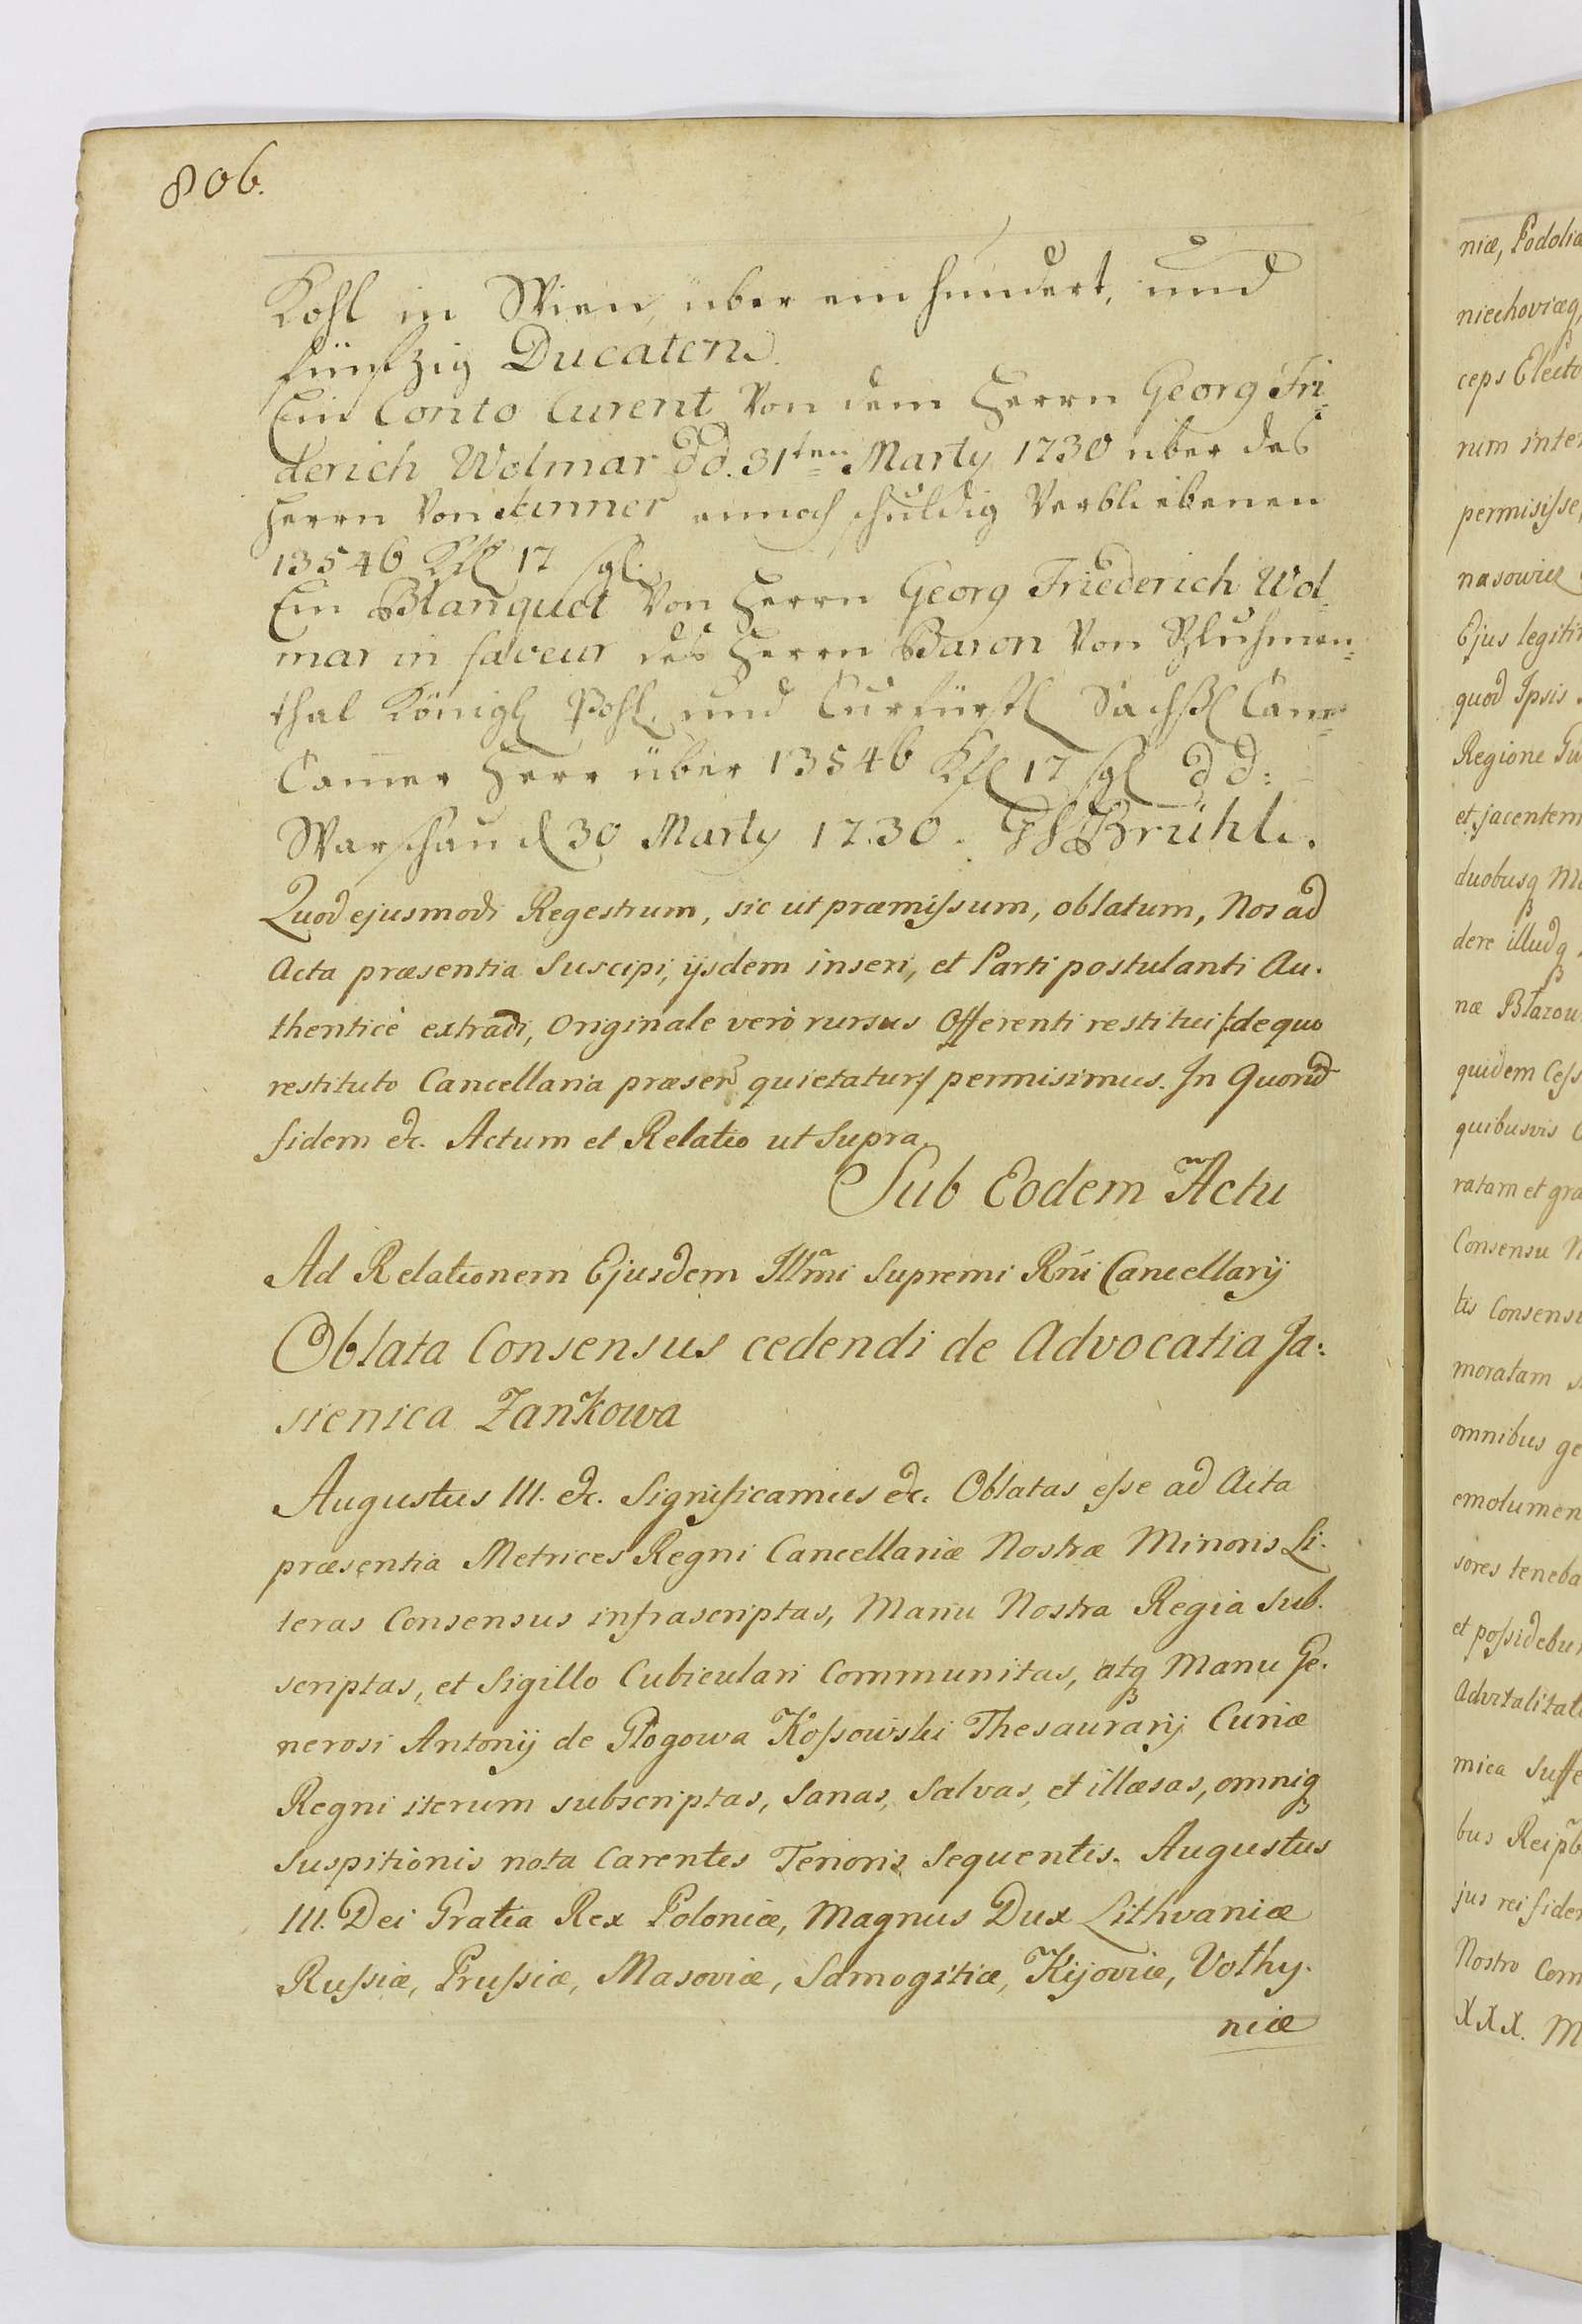 806.
Kohl in Wien, über ein hundert, und
fünfzig Ducaten.
Ein Conto Curent Von dem Herrn Georg Fri=
derich Wolmar dd. 31ten Marty 1730 über des
Herrn Von annoch schuldig Verbliebenen
13546 17 sgl.
Ein Blanquet Von Herrn Georg Friederich Wol=
mar in faveur des Herrn Baron Von
thal Königl Pohl. und Curfürstl Sächßl Cam=
Camer Herr über 13546 17 sgl dd:
Warschau d 30 Marty 1730. Brühl.
Quod ejusmodi Regestrum, sic ut præmissum, oblatum, Nos ad
Acta præsentia Suscipi, ijsdem inseri, et Parti postulanti Au.
thenticè extradi, Originale verò rursus Offerenti restitui /:de quo
restituto Cancellaria præsen quietatur:/ permisimus. In Quorũ
fidem &c. Actum et Relatio ut Supra.
Sub Eodem Actu
Ad Relationem Ejusdem Illmi Supremi Rni Cancellarij
Oblata Consensus cedendi de Advocatia Ja:
sienica Zankowa
Augustus III. &c. Significamus &c. Oblatas esse ad Acta
præsentia Metrices Regni Cancellariæ Nostræ Minoris Li.
teras Consensus infrascriptas, Manu Nostra Regia Sub.
scriptas, et Sigillo Cubiculari Communitas, atq Manu Ge.
nerosi Antonij de Głogowa Kossowski Thesaurarij Curiæ
Regni iterum subscriptas, Sanas, Salvas, et illæsas, omniq
Suspitionis nota Carentes Tenoris Sequentis. Augustus
III. Dei Gratia Rex Poloniæ, Magnus Dux Lithvaniæ
Russiæ, Prussiæ, Masoviæ, Samogitiæ, Kijoviæ, Volhy.
niæ
niæ, Podoliæ
niechoviæq,
ceps Electo
rum inter
permisisse,
nasowicz
Ejus legiti
quod Ipsis
Regione
et jacentem
duobusq
dere illudq
næ Błazow
quidem Cess
quibusvis
ratam et gra
Consensu
tis Consensu
moratam
omnibus ge
emolumen
sores teneba
et possidebun
Advitalitat
mica Suffe
bus Reipb
jus rei fidem
Nostro Com
XXX. M